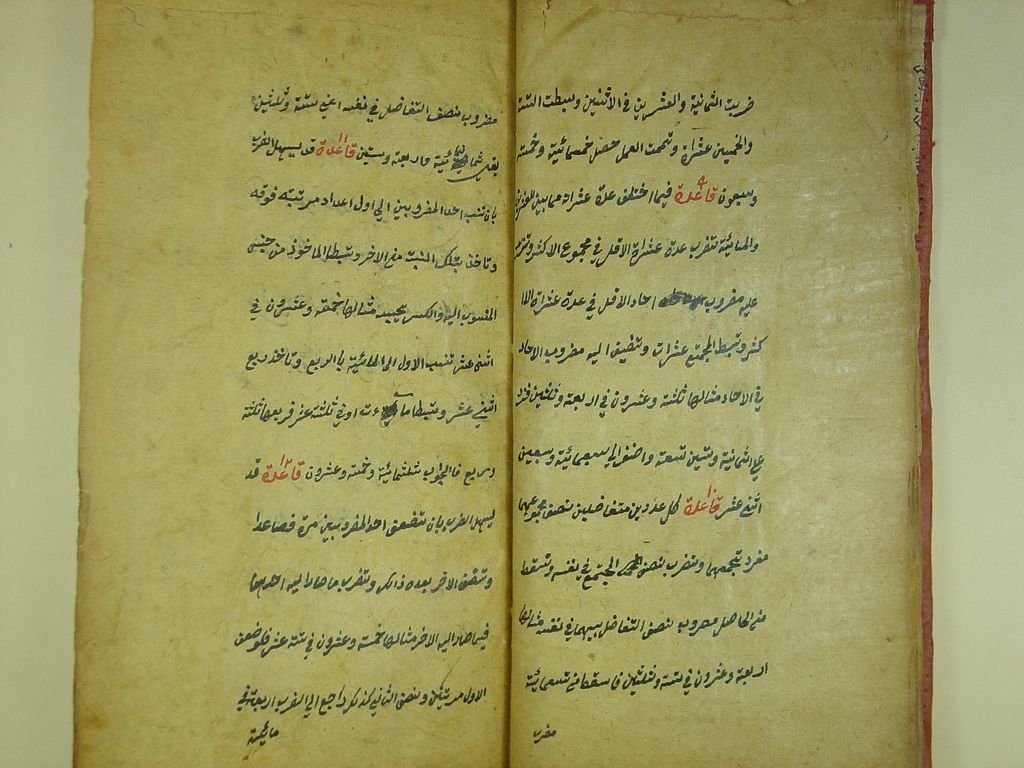 ضربت الثمانية والعشرين في الاثنين وبسطت الستة
والخمسين عشراة وتممت العمل حصل خمسمائية وخمسته
وسبعون قاعدة ٩ فيما اختلف عدة عشراته مما بين العشرة
والمائية تضرب عدة عشراة الاقل في مجموع الاكثر وتزيد
عليه مضروب احاد الاقل في عدة عشراة الا
كثر وتبسط المجتمع عشرات وتضيف اليه مضروب الاحاد
في الاحاد مثالها ثلثة وعشرون في اربعة وثلثين فزد
علي الثمانية وستين تسعة واضف الي سبعمائية وسبعين
اثني عشر قاعدة ١٠ كل عددين متفاضلين نصف مجموعهما
مفرد تجمعهما وتضرب نصف المجتمع في نفسه وتسقط
من الحاصل مضروب نصف التفاضل بينهما في نفسه مثالها
اربعة وعشرون في ستة وثلثين فاسقط من تسعمائية
مضرب
مضروب نصف التفاضل في نفسه اعني ستة وثلثين
بقي ثمانمائية واربعة وستين قاعدة ١١ قد يسهل الضرب
بان تنسب احد المضروبين الي اول اعداد مرتبته فوقه
وتاخذ بتلك النسبة من الاخر وتبسط الماخوذ من جنس
المنسوب اليه والكسر بحسبه مثالها خمسة وعشرون في
اثني عشر تنسب الاول الي المائية بالربع وتاخذ ربع
اثني عشر وتبسطها مائت او في ثلثة عشر فربعها ثلثة
وربع فالجواب ثلثمائية وخمسة وعشرون قاعدة ١٢ قد
يسهل الضرب بان تضعف احد المضروبين مرة فصاعدا
وتنصف الاخر بعدة ذالك وتضرب ما صار اليه احدهما
فيما صار اليه الاخر مثالها خمسة وعشرون في ستة عشر فلو ضعف
الاول مرتين ونصف الثاني كذلك لراجع الي الضرب اربعة في
مائية